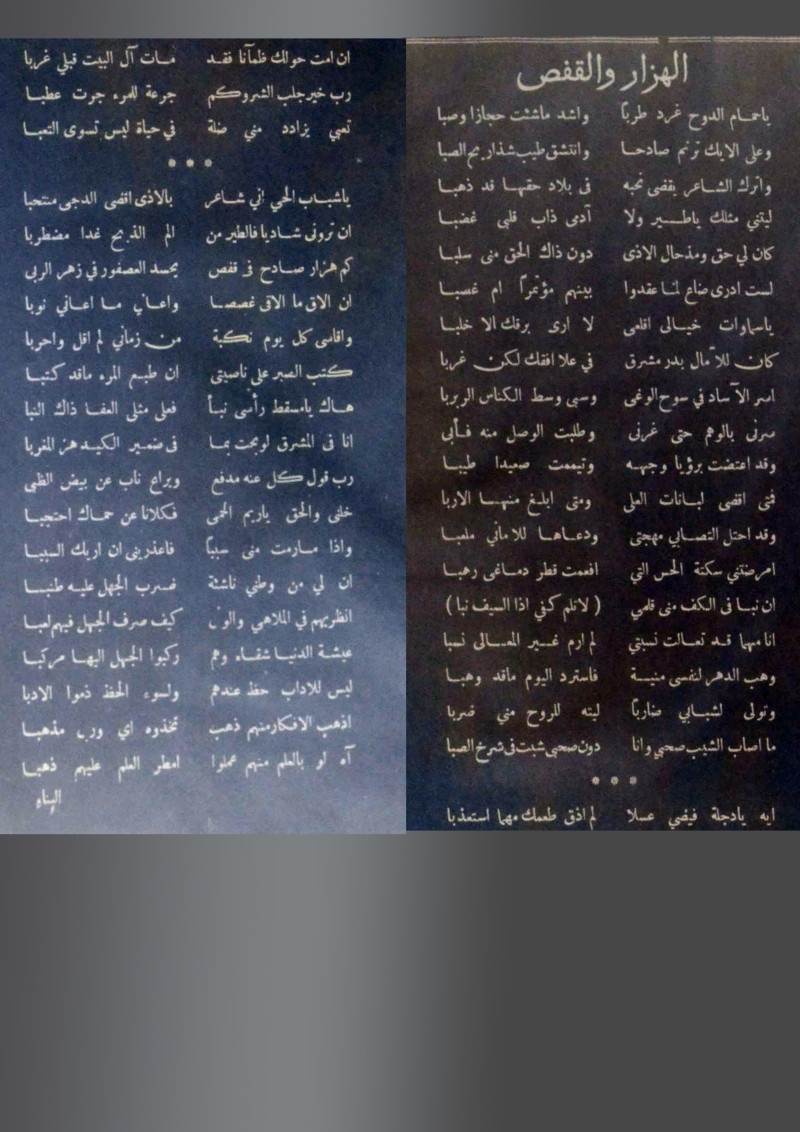 الهزار والقفص
ياحمام الدوح غرد طربا واشد ماشئت حجازا وصبا
وعلى الايك ترنم صادحا وانتشق طيب شذا ريح الصبا
واترك الشاعر يقضى نحبه فى بلاد حقها قد ذهبا
ليتني مثلك ياطير ولا أدى ذاب قلبى غضبا
كان لي حق ومذحال الاذى دون ذاك الحق منى سلبا
لست ادرى ضاع لما عقدوا بينهم مؤتمرا ام غصبا
ياسماوات خيالى اقلعى لا ارى برقك الا خلبا
كان للآمال بدر مشرق في علا افقك لكن غربا
اسر الآساد في سوح الوغى وسبى وسط الكناس الربربا
سرنى بالوهم حتى غرنى وطلبت الوصل منه فأبى
وقد اعتضت برؤيا وجهه وتيممت صعيدا طيبا
فتى اقضى لبانات العلى ومتى ابلغ منها الاربا
وقد احتل التصابي مهجتى ودعاها للاماني ملعبا
امرضتني سكتة الخرس التي افعمت قطر دماغى رهبا
ان نبا فى الكف منى قلمي ( لا تلم كفي اذا السيف نبا )
انا مهما قد تعالت نسبتي لم ارم غير المعالى نسبا
وهب الدهر لنفسى منية فاسترد اليوم ماقد وهبا
وتولى لشبابي ضاربا ليته للروح مني ضربا
ما اصاب الشيب صحبي وانا دون صحبي شبت فى شرخ الصبا
* * *
ايه يادجلة فيضي عسلا لم اذق طعمك مهما استعذبا
ان امت حولك ظمآنا فقد مات آل البيت قبلي غربا
رب خير جلب الشر وكم جرعة للمرء جرت عطبا
تعبي يزداد مني ضلة في حياة ليس تسوى التعبا
* * *
ياشباب الحي اني شاعر بالاذى اقضى الدجى منتحبا
ان ترونى شاديا فالطير من الم الذبح غدا مضطربا
كم هزار صادح فى قفص يحسد العصفور في زهر الربى
ان الاق ما الاقى غصصا واعاني ما اعاني نوبا
واقاسى كل يوم نكبة من زماني لم اقل واحربا
كتب الصبر على ناصيتى ان طبسم المرء ماقد كتبا
هاك يامسقط رأسى نبأ فعلى مثلى العفا ذاك النبا
انا فى المشرق لو بحت بما فى ضمير الكيد هز المغربا
رب قول كل عنه مدفع ويراع ناب عن بيض الظبى
خلى والحق ياريم الحمى فكلانا عن حماك احتجبا
واذا مارمت منى سببا فاعذريني ان اربك السببا
ان لي من وطني ناشئة ضرب الجهل عليه طنبا
انظريهم في الملاهي كيف صرف الجهل فيهم لعبا
عيشة الدنيا شقاء وهم ركبوا الجهل اليها مركبا
ليس للاداب حظ عندهم ولسوء الحظ ذموا الادبا
اذهب الافكار منهم ذهب تخذوه اي مذهبا
آه لو بالعلم منهم عملوا امطر العلم عليهم ذهبا
البناء